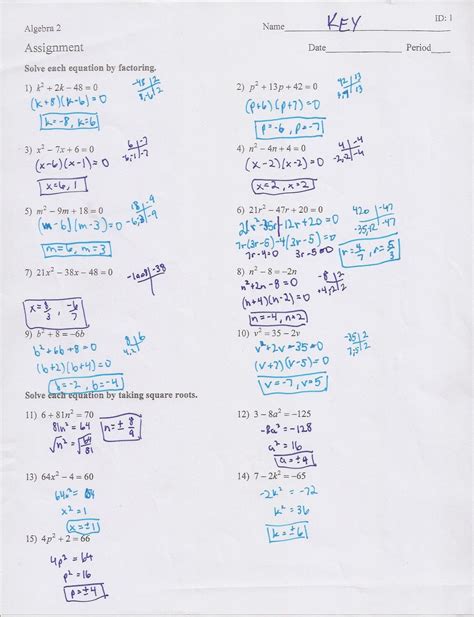 ID: 1
Algebra 2
Name KEY
Assignment
Date Period
Solve each equation by factoring.
1) k² + 2k − 48 = 0
-48 | 2
8, -6 | 2
(k+8)(k-6)=0
k=-8, k=6
2) p² + 13p + 42 = 0
42 | 13
(p+6)(p+7)=0
p=-6, p=-7
3) x² − 7x + 6 = 0
6 | -7
-6,-1 | -7
(x-6)(x-1)=0
x=6, 1
4) n² − 4n + 4 = 0
4 | -4
-2,-2 | -4
(x-2)(x-2)=0
x=2, x=2
5) m² − 9m + 18 = 0
18 | -9
-6,-3 | -9
(m-6)(m-3)=0
m=6, m=3
6) 21r² − 47r + 20 = 0
420 | -47
-35,-12 | -47
21r²-35r-12r+20=0
7r(3r-5)-4(3r-5)=0
7r-4=0 3r-5=0
r=4/7, r=5/3
7) 21x² − 38x − 48 = 0
-1008 | -38
x=8/3, -6/7
8) n² − 8 = −2n
-8 | 2
+4,-2 | 2
n²+2n-8=0
(n+4)(n-2)=0
n=-4, n=2
9) b² + 8 = −6b
8 | 6
4,2 |
b²+6b+8=0
(b+2)(b+4)=0
b=-2, b=-4
10) v² = 35 − 2v
-35 | 2
7,-5 | 2
v²+2v-35=0
(v+7)(v-5)=0
v=-7, v=5
Solve each equation by taking square roots.
11) 6 + 81n² = 70
81n² = 64
√n² = √64/81
n=± 8/9
12) 3 − 8a² = −125
-8a² = -128
a² = 16
a=±4
13) 64x² − 4 = 60
64x² = 64
x² = 1
x=±1
14) 7 − 2k² = −65
-2k² = -72
k² = 36
k=±6
15) 4p² + 2 = 66
4p² = 64
p² = 16
p=±4